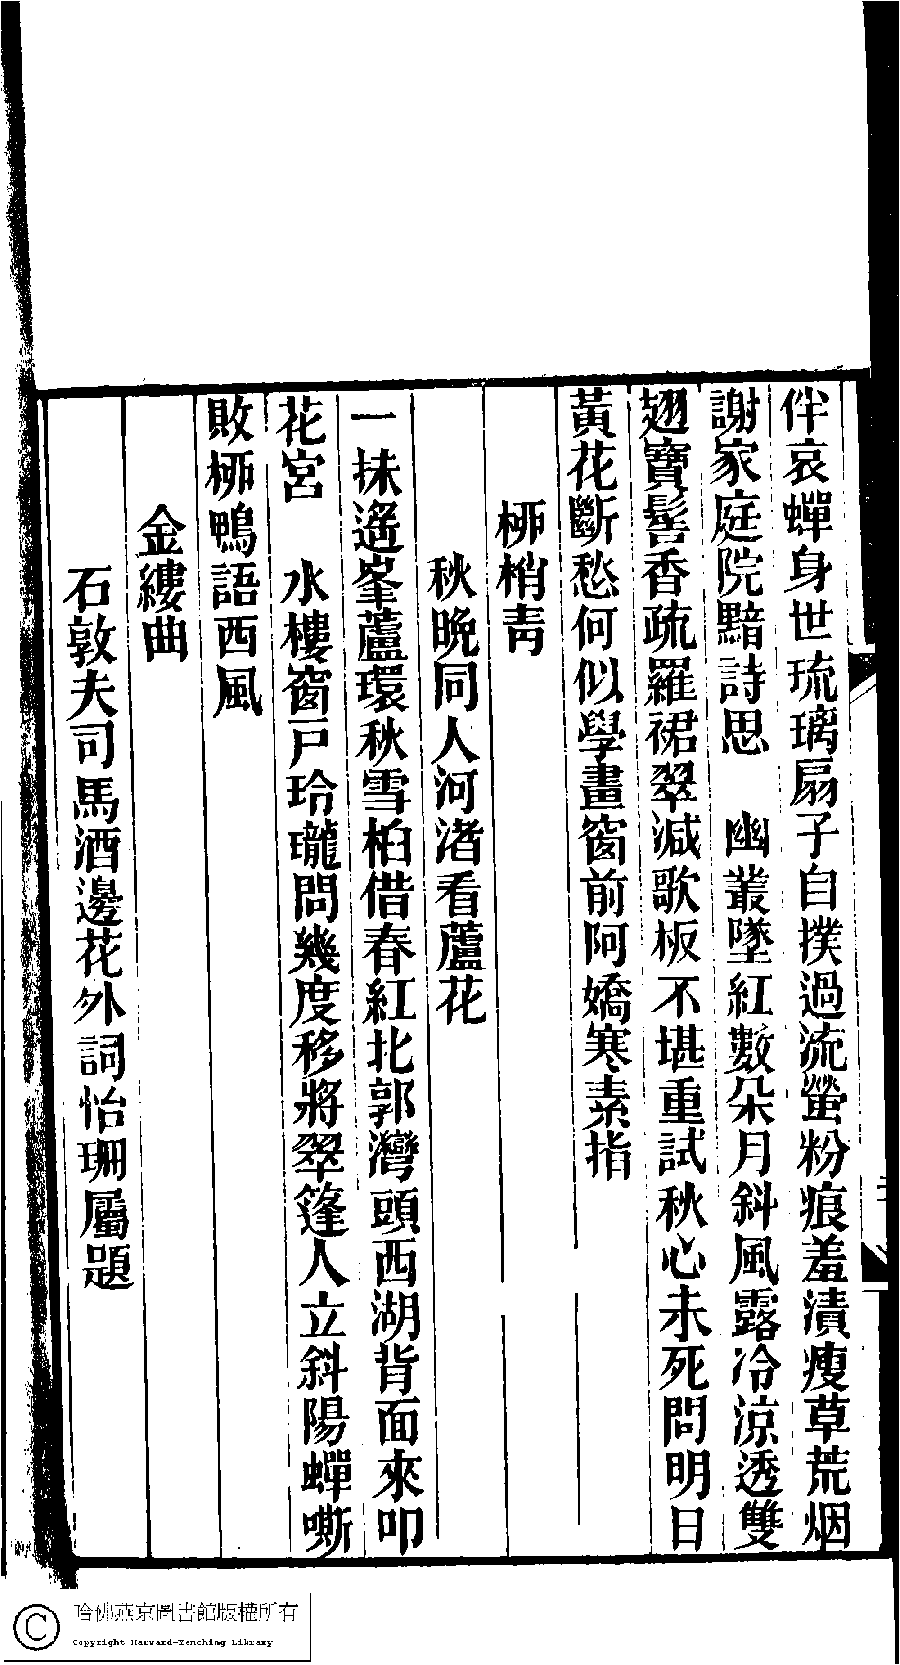 伴哀蟬身世琉璃扇子自撲過流螢粉痕羞漬瘦草荒烟
謝家庭院黯詩思　幽叢墜紅數朵月斜風露冷涼透雙
翅寶髻香疏羅裙翠減歌板不堪重試秋心未死問明日
黃花斷愁何似學畫窗前阿嬌寒素指
桺梢青
秋晚同人河渚看蘆花
一抹遙峯蘆環秋雪桕借春紅北郭灣頭西湖背面來叩
花宮　水樓窗戶玲瓏問幾度移將翠篷人立斜陽蟬嘶
敗桺鴨語西風
金縷曲
石敦夫司馬酒邊花外詞怡珊屬題
哈佛燕京圖書館版權所有
Copyright Harvard-Yenching Library